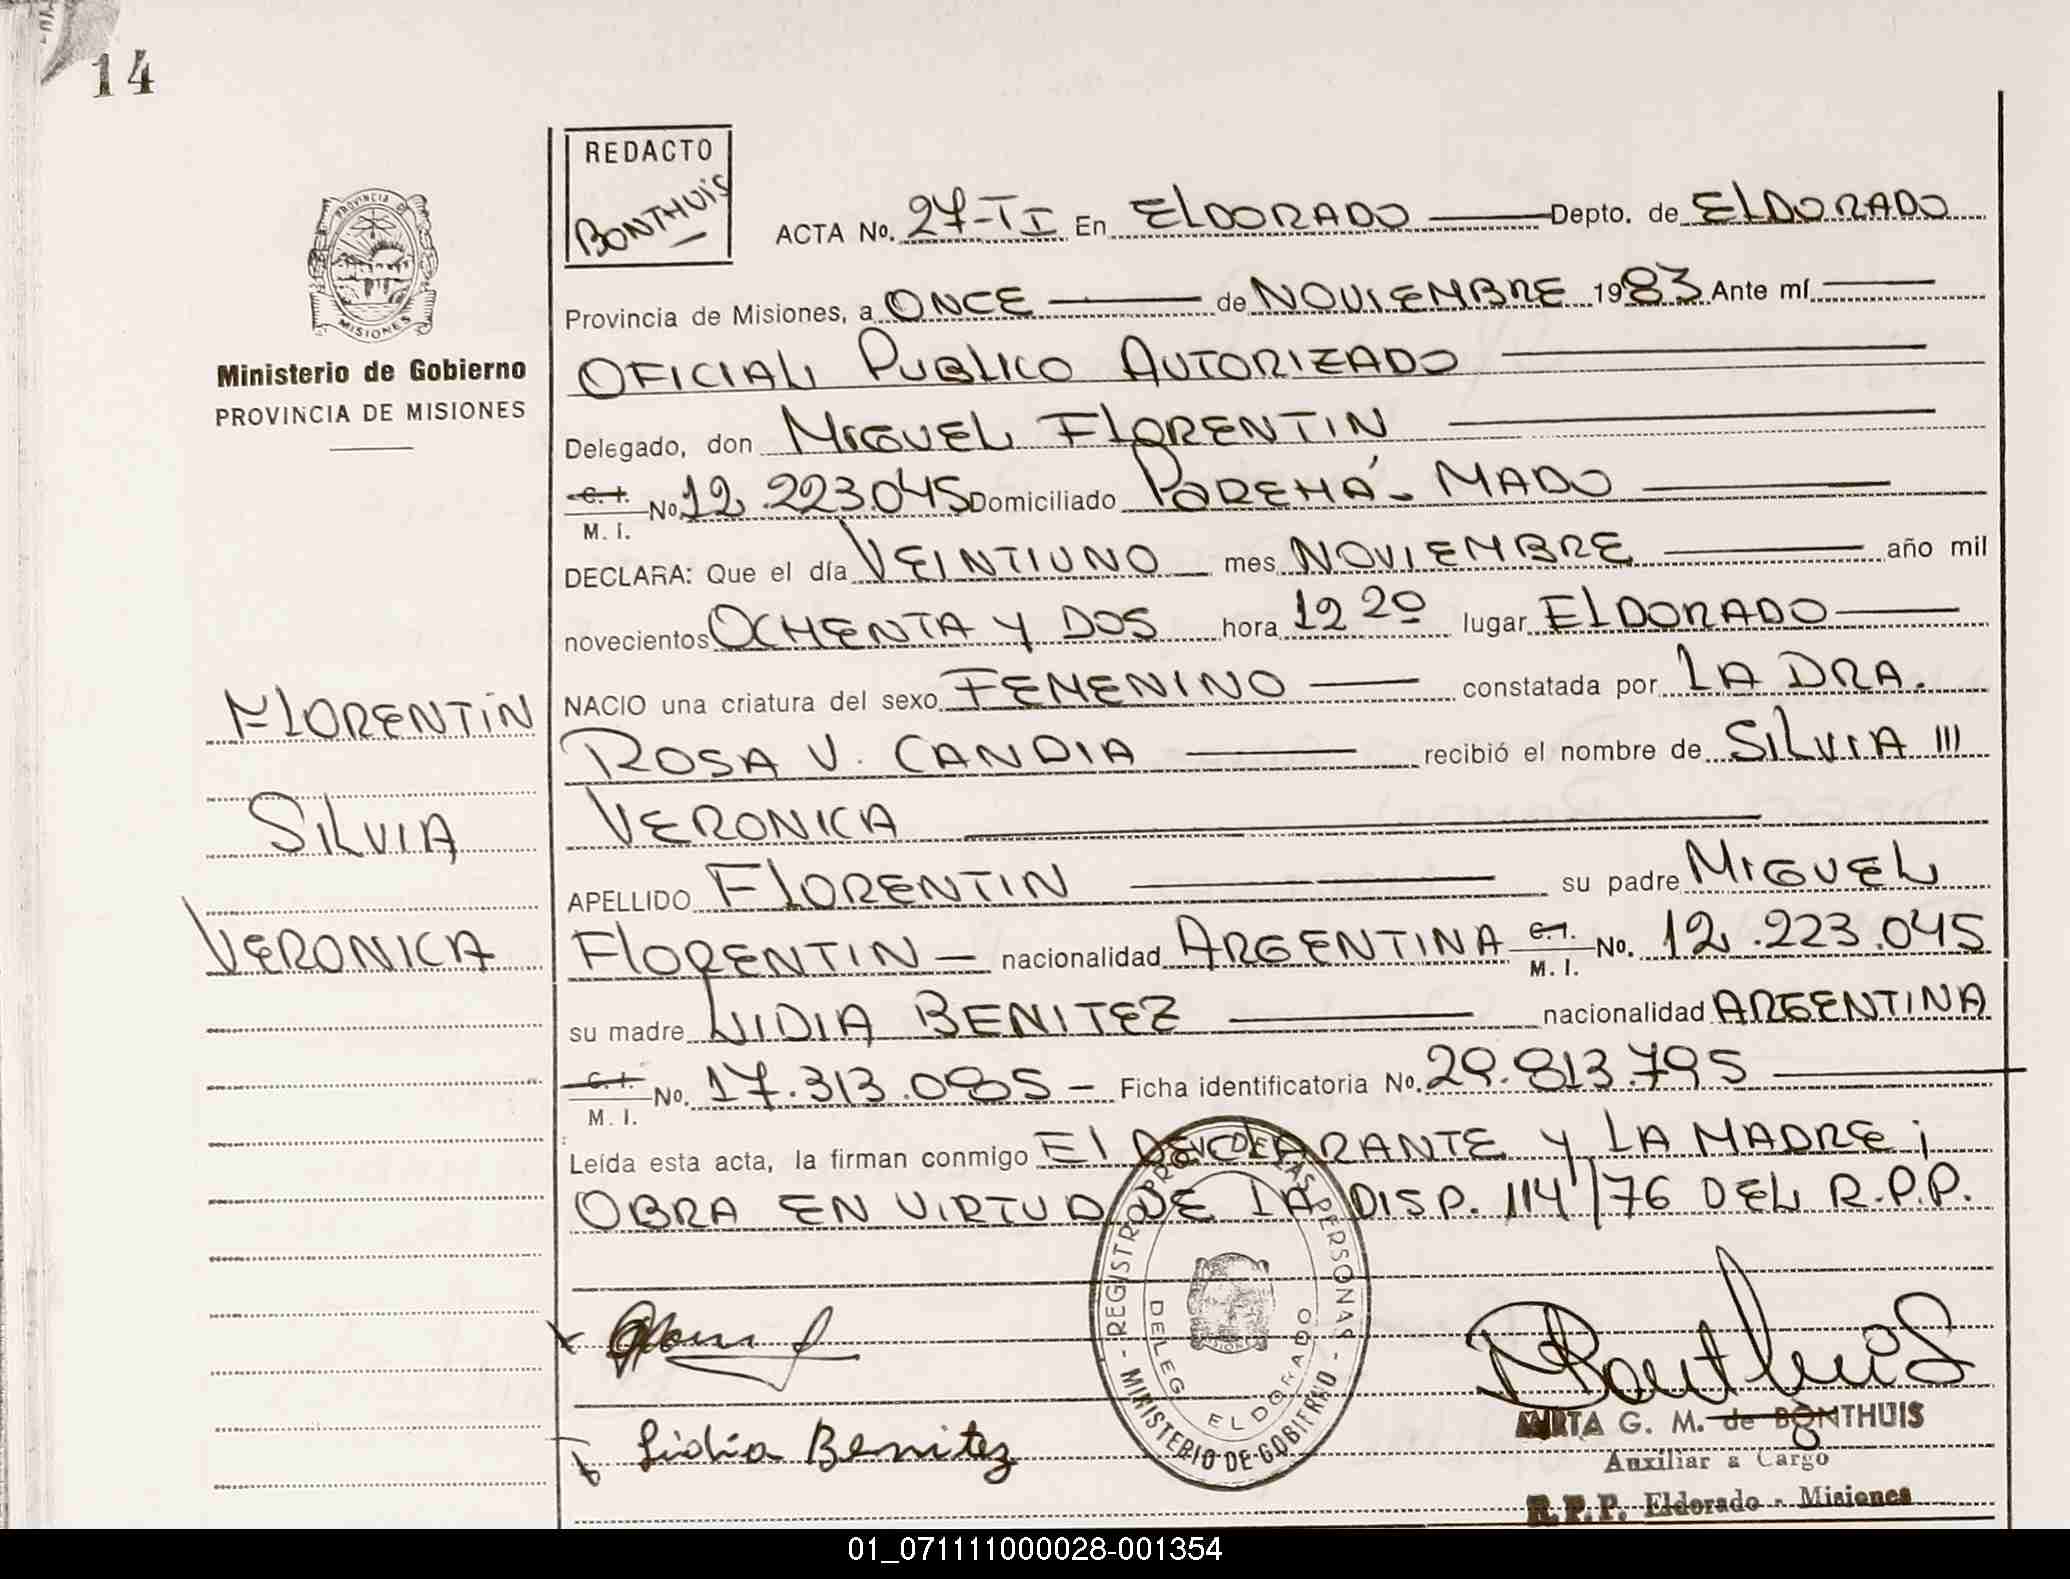 14
REDACTO
BONTHUIS
ACTA No. 27-TI En ELDORADO Depto. de ELDORADO
Provincia de Misiones, a ONCE de NOVIEMBRE 1983 Ante mí
OFICIAL PUBLICO AUTORIZADO
Delegado, don MIGUEL FLORENTIN
C. I. M. I. No 12.223.045 Domiciliado POREHÁ- MADO
DECLARA: Que el día VEINTIUNO mes NOVIEMBRE año mil
novecientos OCHENTA Y DOS hora 12 20 lugar ELDORADO
NACIO una criatura del sexo FEMENINO constatada por LA DRA.
ROSA V. CANDIA recibió el nombre de SILVIA III
VERONICA
APELLIDO FLORENTIN su padre MIGUEL
FLORENTIN nacionalidad ARGENTINA C. I. M. I. No. 12.223.045
su madre LIDIA BENITEZ nacionalidad ARGENTINA
C. I. M. I. No. 17.313.085 - Ficha identificatoria No. 29.813.795
Leída esta acta, la firman conmigo El DECLARANTE Y LA MADRE;
OBRA EN VIRTUD DE LA DISP. 114/76 DEL R.P.P.
PROVINCIA DE
MISIONES
Ministerio de Gobierno
PROVINCIA DE MISIONES
FLORENTIN
SILVIA
VERONICA
Lidia Benitez
- REGISTRO PROV. DE LAS PERSONAS -
MINISTERIO DE GOBIERNO
DELEG. ELDORADO
MBonthuis
MIRTA G. M. de BONTHUIS
Auxiliar a Cargo
R.P.P. Eldorado - Misiones
01_071111000028-001354